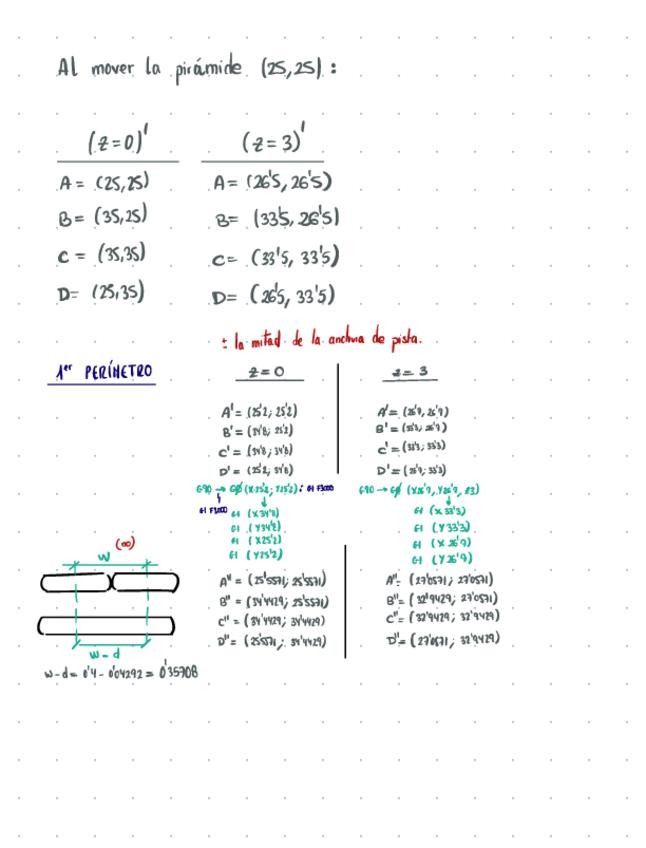 Al mover la pirámide (25,25):
(z=0)' (z=3)'
A = (25,25) A = (26'5, 26'5)
B = (35,25) B = (33'5, 26'5)
C = (35,35) C = (33'5, 33'5)
D = (25,35) D = (26'5, 33'5)
± la mitad de la anchura de pista.
1er PERÍMETRO z=0 z=3
A' = (25'2; 25'2) A' = (26'7, 26'7)
B' = (34'8; 25'2) B' = (33'3; 26'7)
C' = (34'8; 34'8) C' = (33'3; 33'3)
D' = (25'2, 34'8) D' = (26'7; 33'3)
G90 → G0 (X25'2; Y25'2); G1 F3000 G90 → G0 (X26'7, Y26'7, Z3)
G1 F3000 G1 (X34'8) G1 (X33'3)
G1 (Y34'2) G1 (Y33'3)
G1 (X25'2) G1 (X26'7)
G1 (Y25'2) G1 (Y26'7)
(∞)
w
A'' = (25'5571; 25'5571) A'' = (27'0571; 27'0571)
B'' = (34'4429; 25'5571) B'' = (32'9429; 27'0571)
C'' = (34'4429; 34'4429) C'' = (32'9429; 32'9429)
D'' = (25'5571; 34'4429) D' = (27'0571; 32'9429)
w-d
w-d = 0'4 - 0'04292 = 0'35708